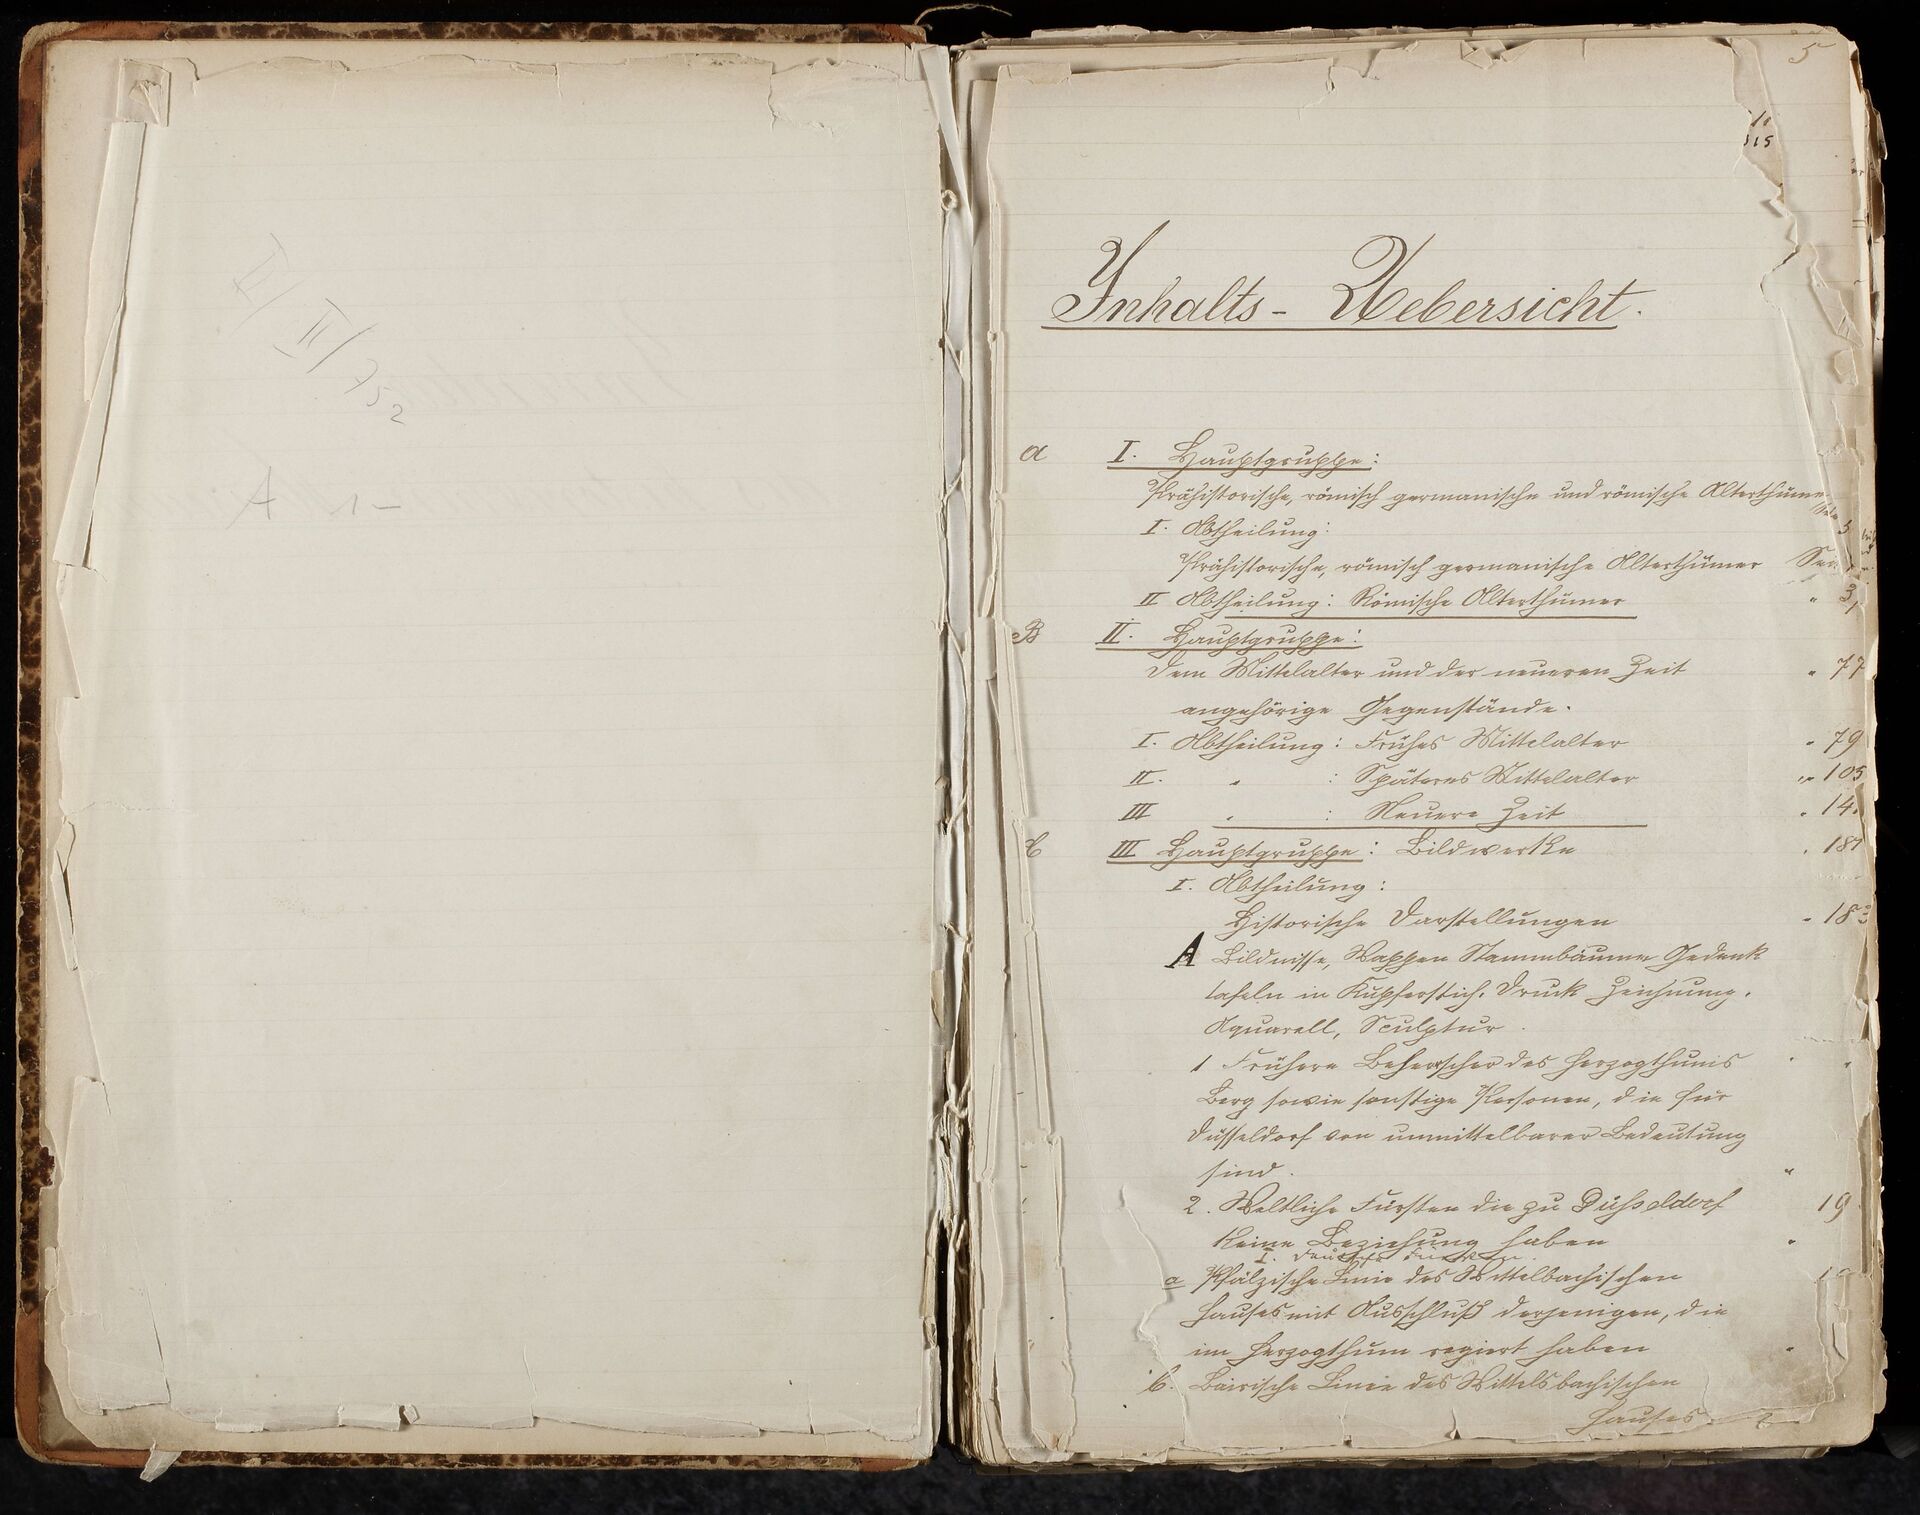 II/II/752
A 1-
5
Inhalts-Uebersicht.
a I. Hauptgruppe:
Prähistorische, römisch germanische und römische Alterthüme
I. Abtheilung:
Prähistorische, römisch germanische Alterthümer
II Abtheilung: Römische Alterthümer
B II. Hauptgruppe:
Dem Mittelalter und der neueren Zeit " 77
angehörige Gegenstände.
I. Abtheilung: Frühes Mittelalter " 79
II. " : Späteres Mittelalter " 105
III " : Neuere Zeit " 14
C III Hauptgruppe: Bildwerke " 181
I. Abtheilung:
Historische Darstellungen " 183
A Bildnisse, Wappen Stammbäume Gedenk
tafeln in Kupferstich, Druck Zeichnung,
Aquarell, Sculptur.
1 Frühere Beherrscher des Herzogthums
Berg sowie sonstige Personen, die für
Düsseldorf von unmittelbarer Bedeutung
sind. "
2. Weltliche Fürsten die zu Düsseldorf 19
keine Beziehung haben "
I. Deutsche Fürsten.
a Pfälzische Linie des Wittelbachischen
Hauses mit Ausschluß derjenigen, die
im Herzogthum regiert haben "
b. Bairische Linie des Wittelsbachischen
Hauses